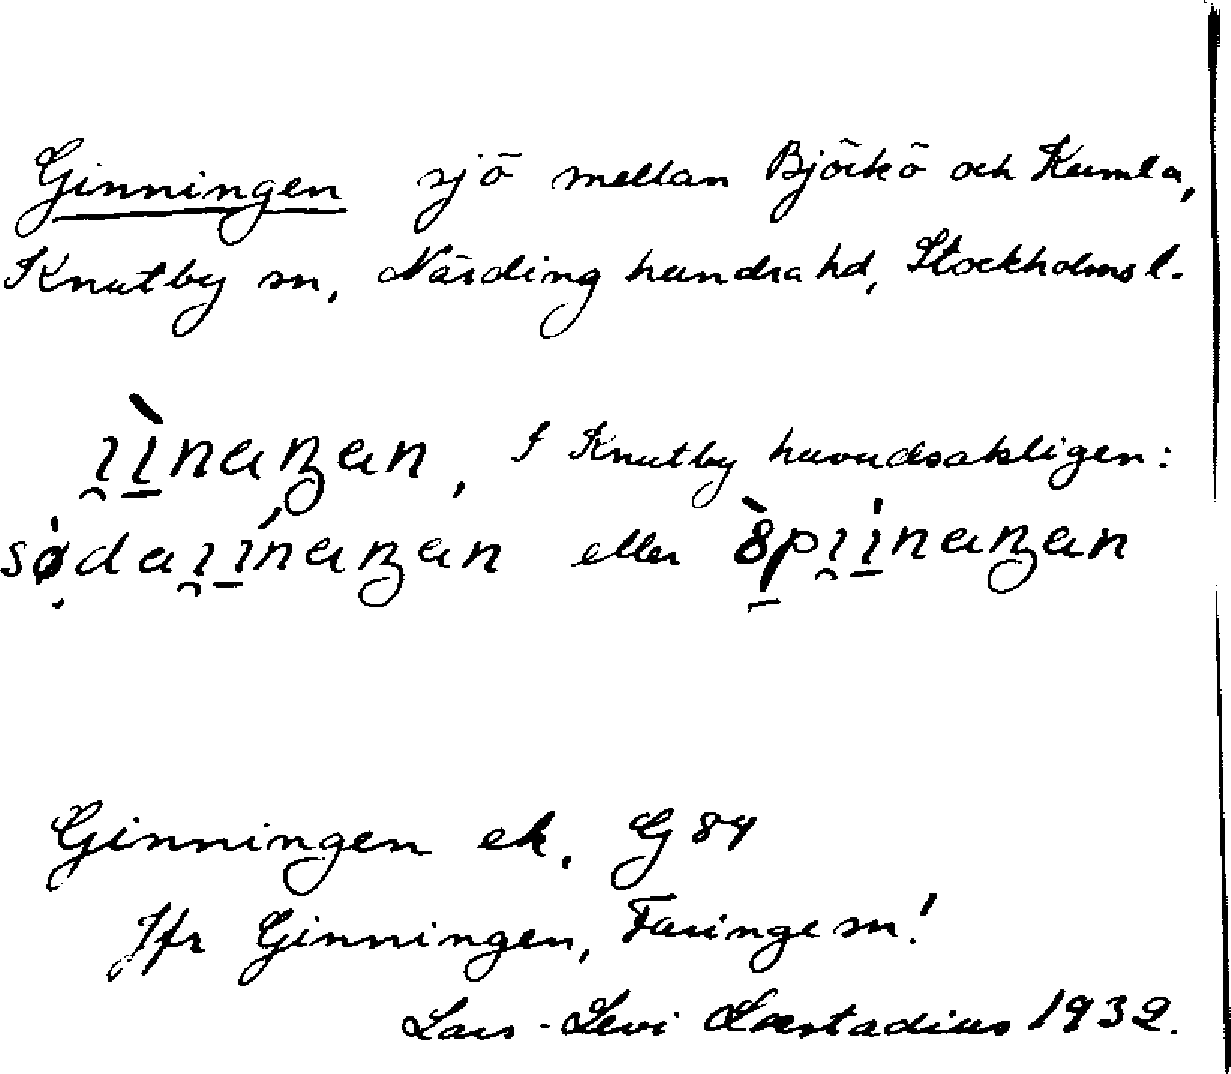 Ginningen sjö mellan Björkö och Kumla,
Knutby sn, Närdinghundra hd, Stockholms l.
I Knutby huvudsakligen:
eller
Ginningen ek. G 84
Jfr Ginningen, Faringe sn!
Lars-Levi Læstadius 1932.